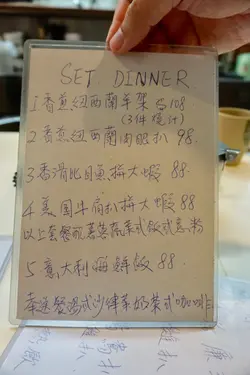 SET DINNER
1 香煎紐西蘭羊架 $108
(3件起计)
2 香煎紐西蘭肉眼扒 98.
3 香滑比目魚拼大蝦 88
4 美国牛扒拼大蝦 88
以上套餐配薯蓉蔬菜或飯或意粉
5 意大利海鮮飯 88
套送餐湯或沙律茶奶茶或咖啡